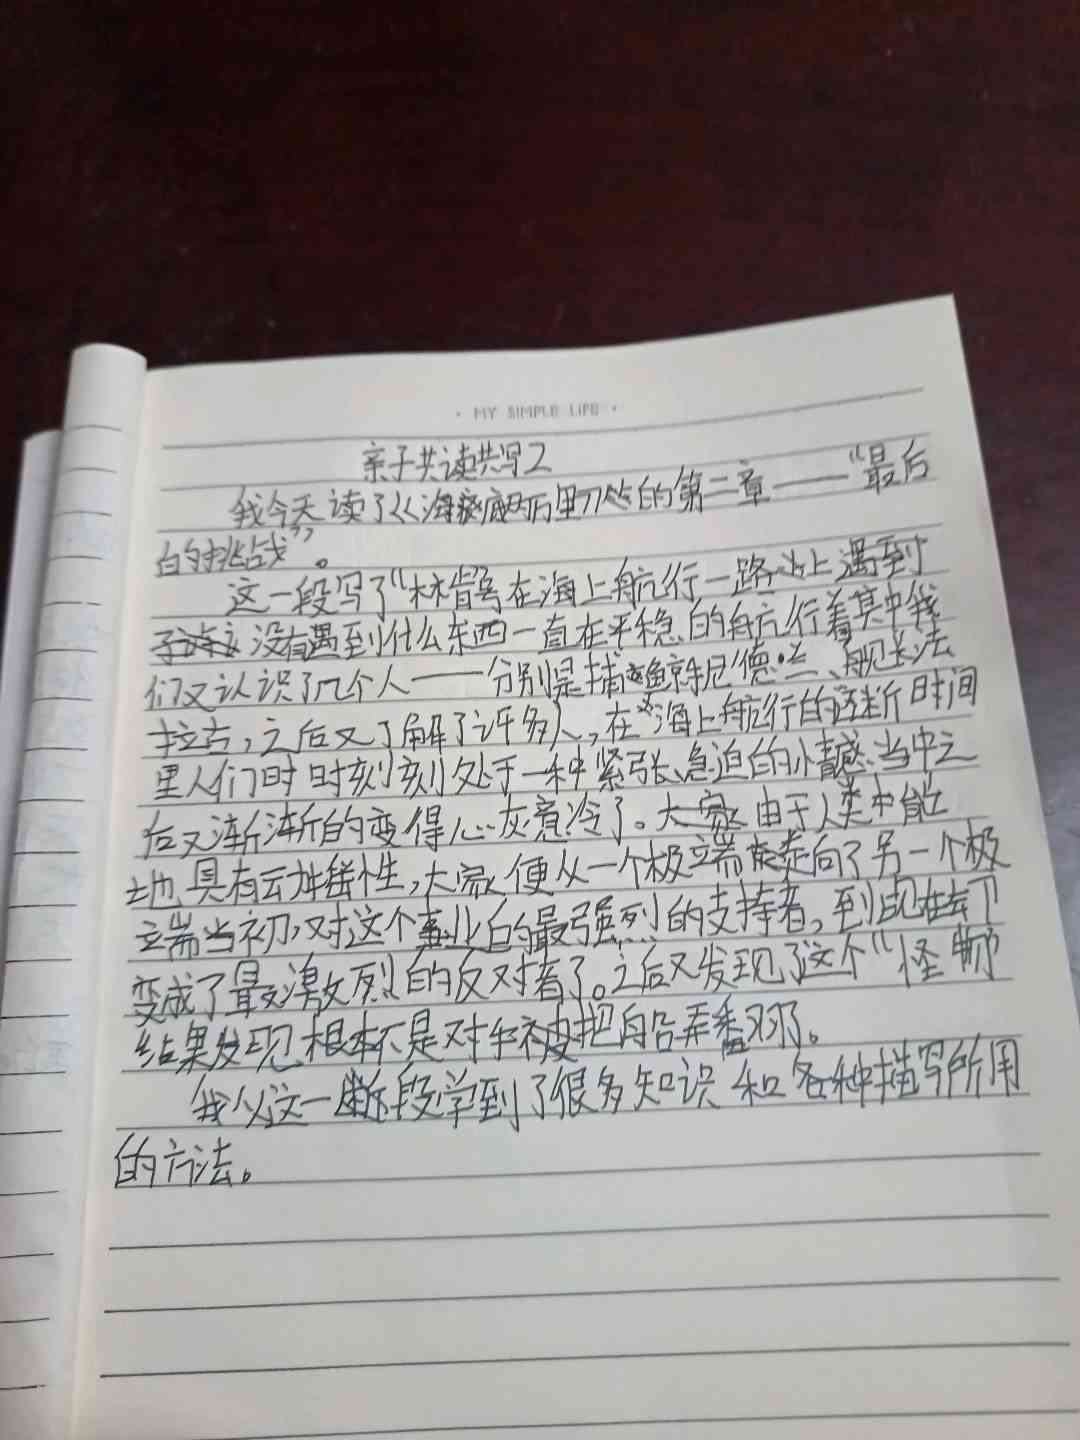 · MY SIMPLE LIFE ·
亲子共读共写2
我今天读了《海底两万里》的第二章——“最后
的挑战”。
这一段写了“林肯号在海上航行,一路上遇到
没有遇到什么东西一直在平稳的航行着其中我
们又认识了几个人——分别是捕鲸手尼德·兰、舰长法
拉古,之后又了解了许多人,在海上航行的这断时间
里人们时时刻刻处于一种紧张、急迫的情感当中之
后又渐渐的变得心灰意冷了。大家由于人类本能
地具有云性,大家便从一个极端走向了另一个极
端当初,对这个事业的最强烈的支持者,到现在却
变成了最激烈的反对者了。之后又发现了这个“怪物
结果发现根本不是对手被把船弄翻了。
我从这一段学到了很多知识和各种描写所用
的方法。